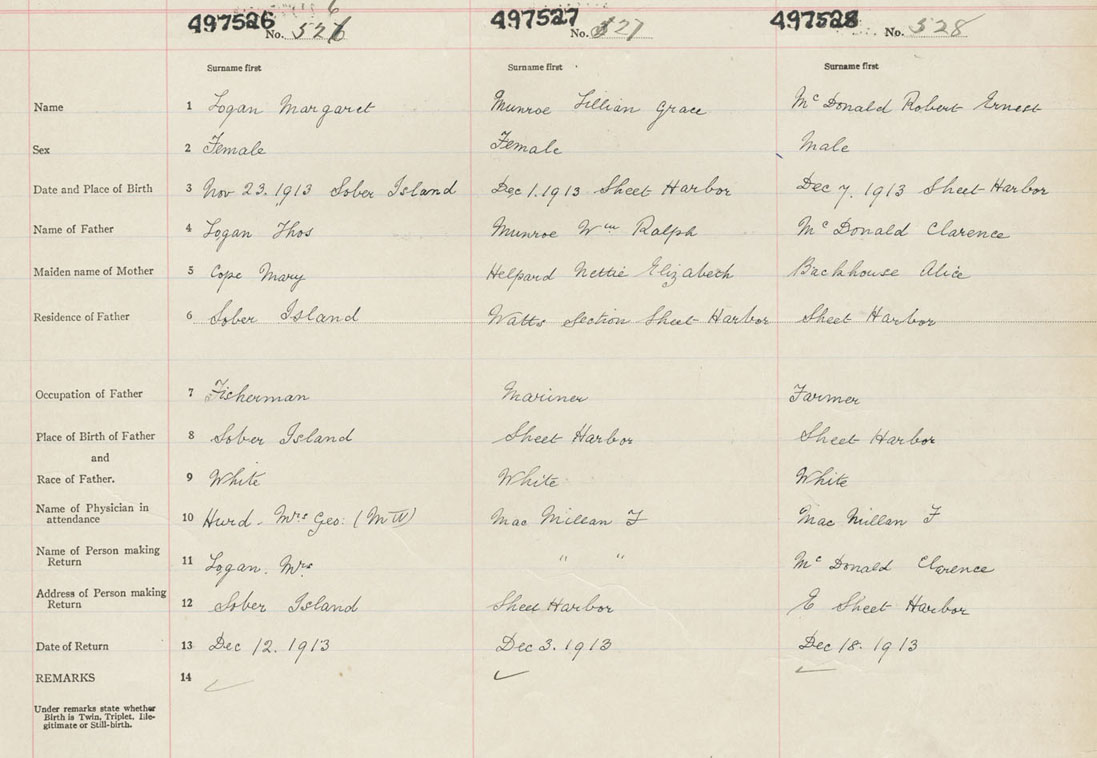 497526 No. 526 497527 No. 527 497528 No. 528
Surname first Surname first Surname first
Name 1 Logan Margaret Munroe Lillian Grace Mc Donald Robert Ernest
Sex 2 Female Female Male
Date and Place of Birth 3 Nov 23. 1913 Sober Island Dec 1. 1913 Sheet Harbor Dec 7. 1913 Sheet Harbor
Name of Father 4 Logan Thos Munroe Wm Ralph Mc Donald Clarence
Maiden name of Mother 5 Cope Mary Helpard Nettie Elizabeth Backhouse Alice
Residence of Father 6 Sober Island Watts Section Sheet Harbor Sheet Harbor
Occupation of Father 7 Fisherman Mariner Farmer
Place of Birth of Father 8 Sober Island Sheet Harbor Sheet Harbor
and
Race of Father. 9 White White White
Name of Physician in
attendance 10 Hurd - Mrs Geo: (M W) Mac Millan F Mac Millan F
Name of Person making
Return 11 Logan. Mrs " " Mc Donald Clarence
Address of Person making
Return 12 Sober Island Sheet Harbor E Sheet Harbor
Date of Return 13 Dec 12. 1913 Dec 3. 1913 Dec 18. 1913
REMARKS 14
Under remarks state whether
Birth is Twin, Triplet, Ille-
gitimate or Still-birth.